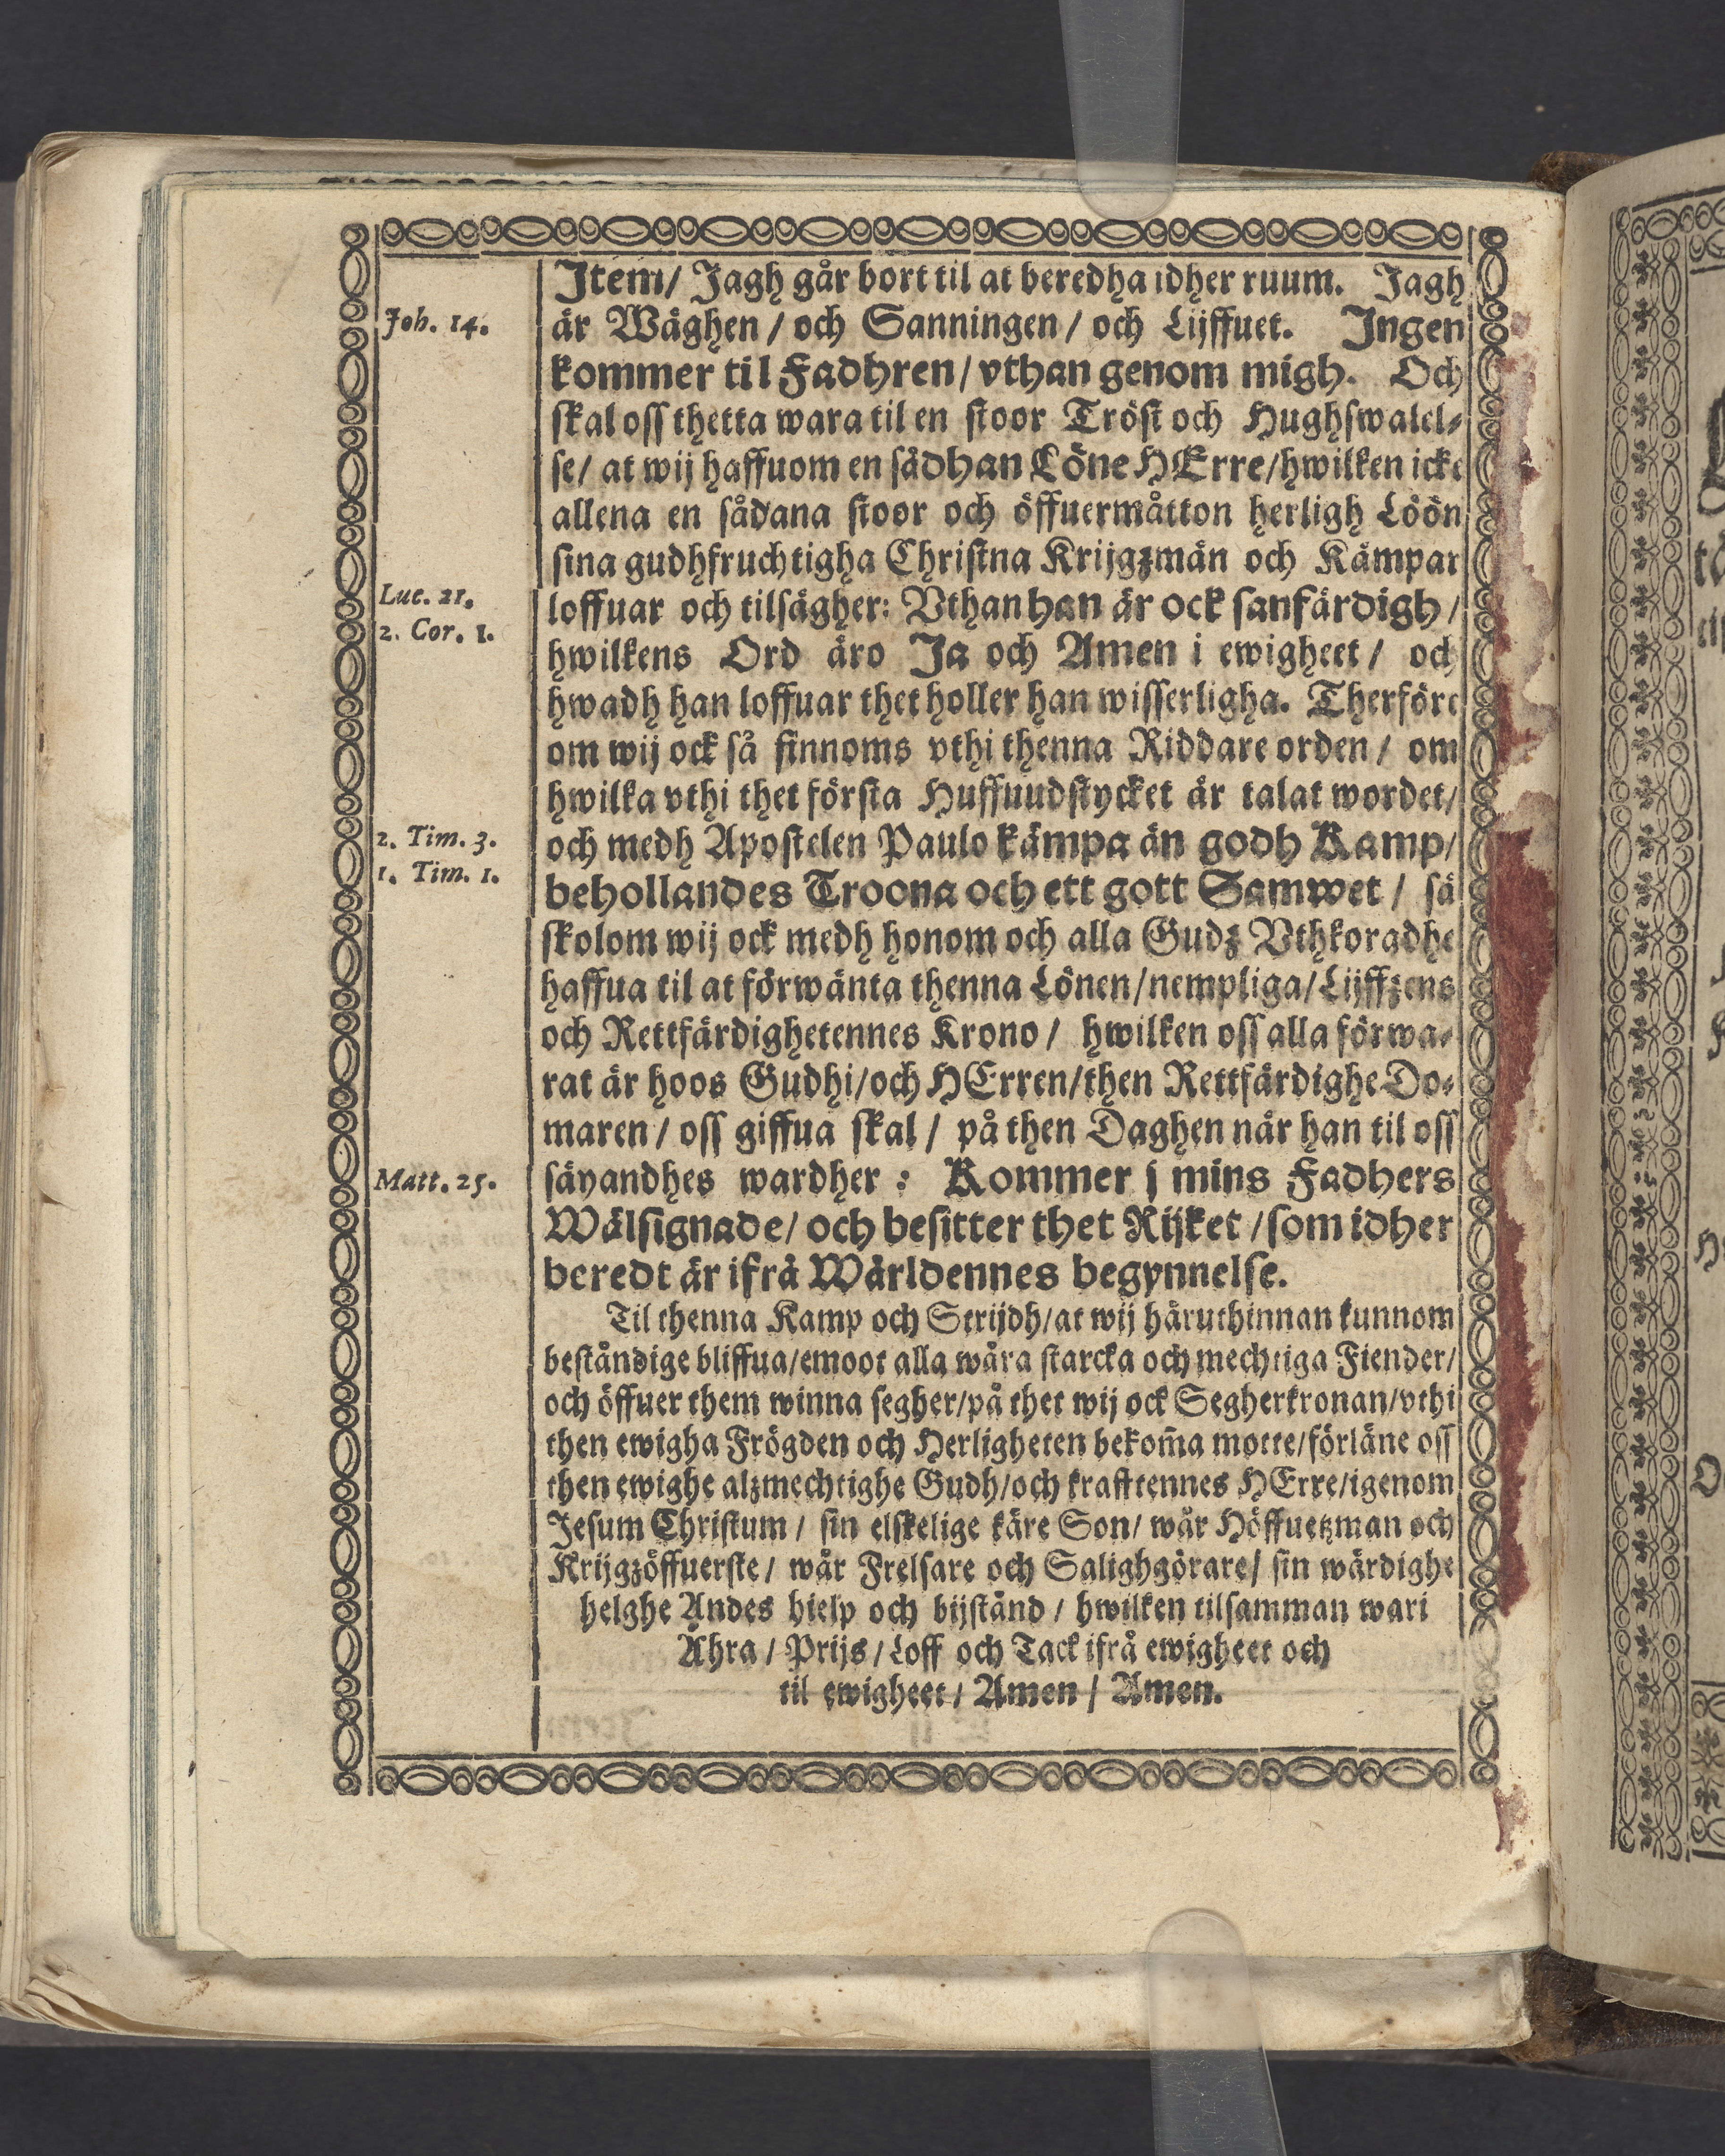 Item/ Jagh går bort til at beredha idher ruum. Jagh
Joh. 14.
är Wäghen / och Sanningen / och Lijffuet. Ingen
kommer til Fadhren/ vthan genom migh. Och
skal oss thetta wara til en stoor Tröst och Hughswalel-
se/ at wij haffuom en sådhan Löne HErre/hwilken icke
allena en sådana stoor och öffuermåtton herligh Löön
sina gudhfruchtigha Christna Krijgzmän och Kämpar
Luc. 21.
loffuar och tilsägher: Vthan han är ock sanfärdigh /
2. Cor. 1.
hwilkens Ord äro Ja och Amen i ewigheet / och
hwadh han loffuar thet holler han wisserligha. Therföre
om wij ock så finnoms vthi thenna Riddare orden / om
hwilka vthi thet första Huffuudstycket är talat wordet/
2. Tim. 3.
och medh Apostelen Paulo kämpa än godh Kamp/
1. Tim. 1.
behollandes Troona och ett gott Samwet / så
skolom wij ock medh honom och alla Gudz Vthkoradhe
haffua til at förwänta thenna Lönen/nempliga/Lijffzens
och Rettfärdighetennes Krono / hwilken oss alla förwa-
rat är hoos Gudhi/och HErren/then Rettfärdighe Do-
maren / oss giffua skal / på then Daghen när han til oss
Matt. 25.
säyandhes wardher : Kommer j mins Fadhers
Wälsignade/ och besitter thet Rijket /som idher
beredt är ifrå Wärldennes begynnelse.
Til thenna Kamp och Strijdh/at wij häruthinnan kunnom
beståndige bliffua/emoot alla wåra starcka och mechtiga Fiender/
och öffuer them winna segher/på thet wij ock Segherkronan/vthi
then ewigha Frögden och Herligheten bekom̃a motte/förläne oss
then ewighe alzmechtighe Gudh/och krafftennes HErre/igenom
Jesum Christum / sin elskelige käre Son/ wår Höffuetzman och
Krijgzöffuerste / wår Frelsare och Salighgörare/ sin wärdighe
helghe Andes hielp och bijstånd / hwilken tilsamman wari
Ähra / Prijs / Loff och Tack ifrå ewigheet och
til ewigheet / Amen / Amen.